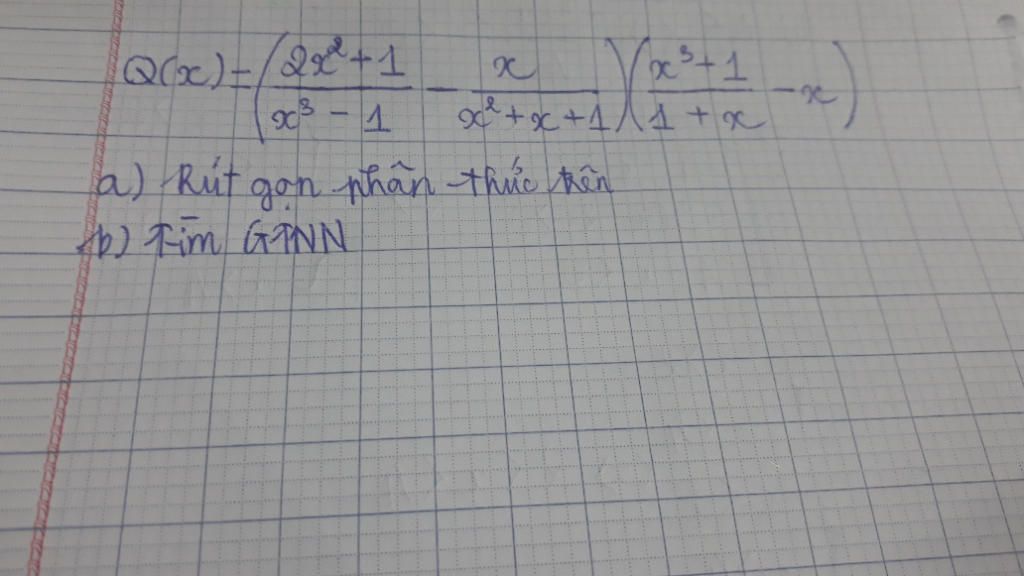 Q(x) = ( (2x² + 1)/(x³ - 1) - x/(x² + x + 1) ) ( (x³ + 1)/(1 + x) - x )
a) Rút gọn phân thức trên
b) Tìm GTNN